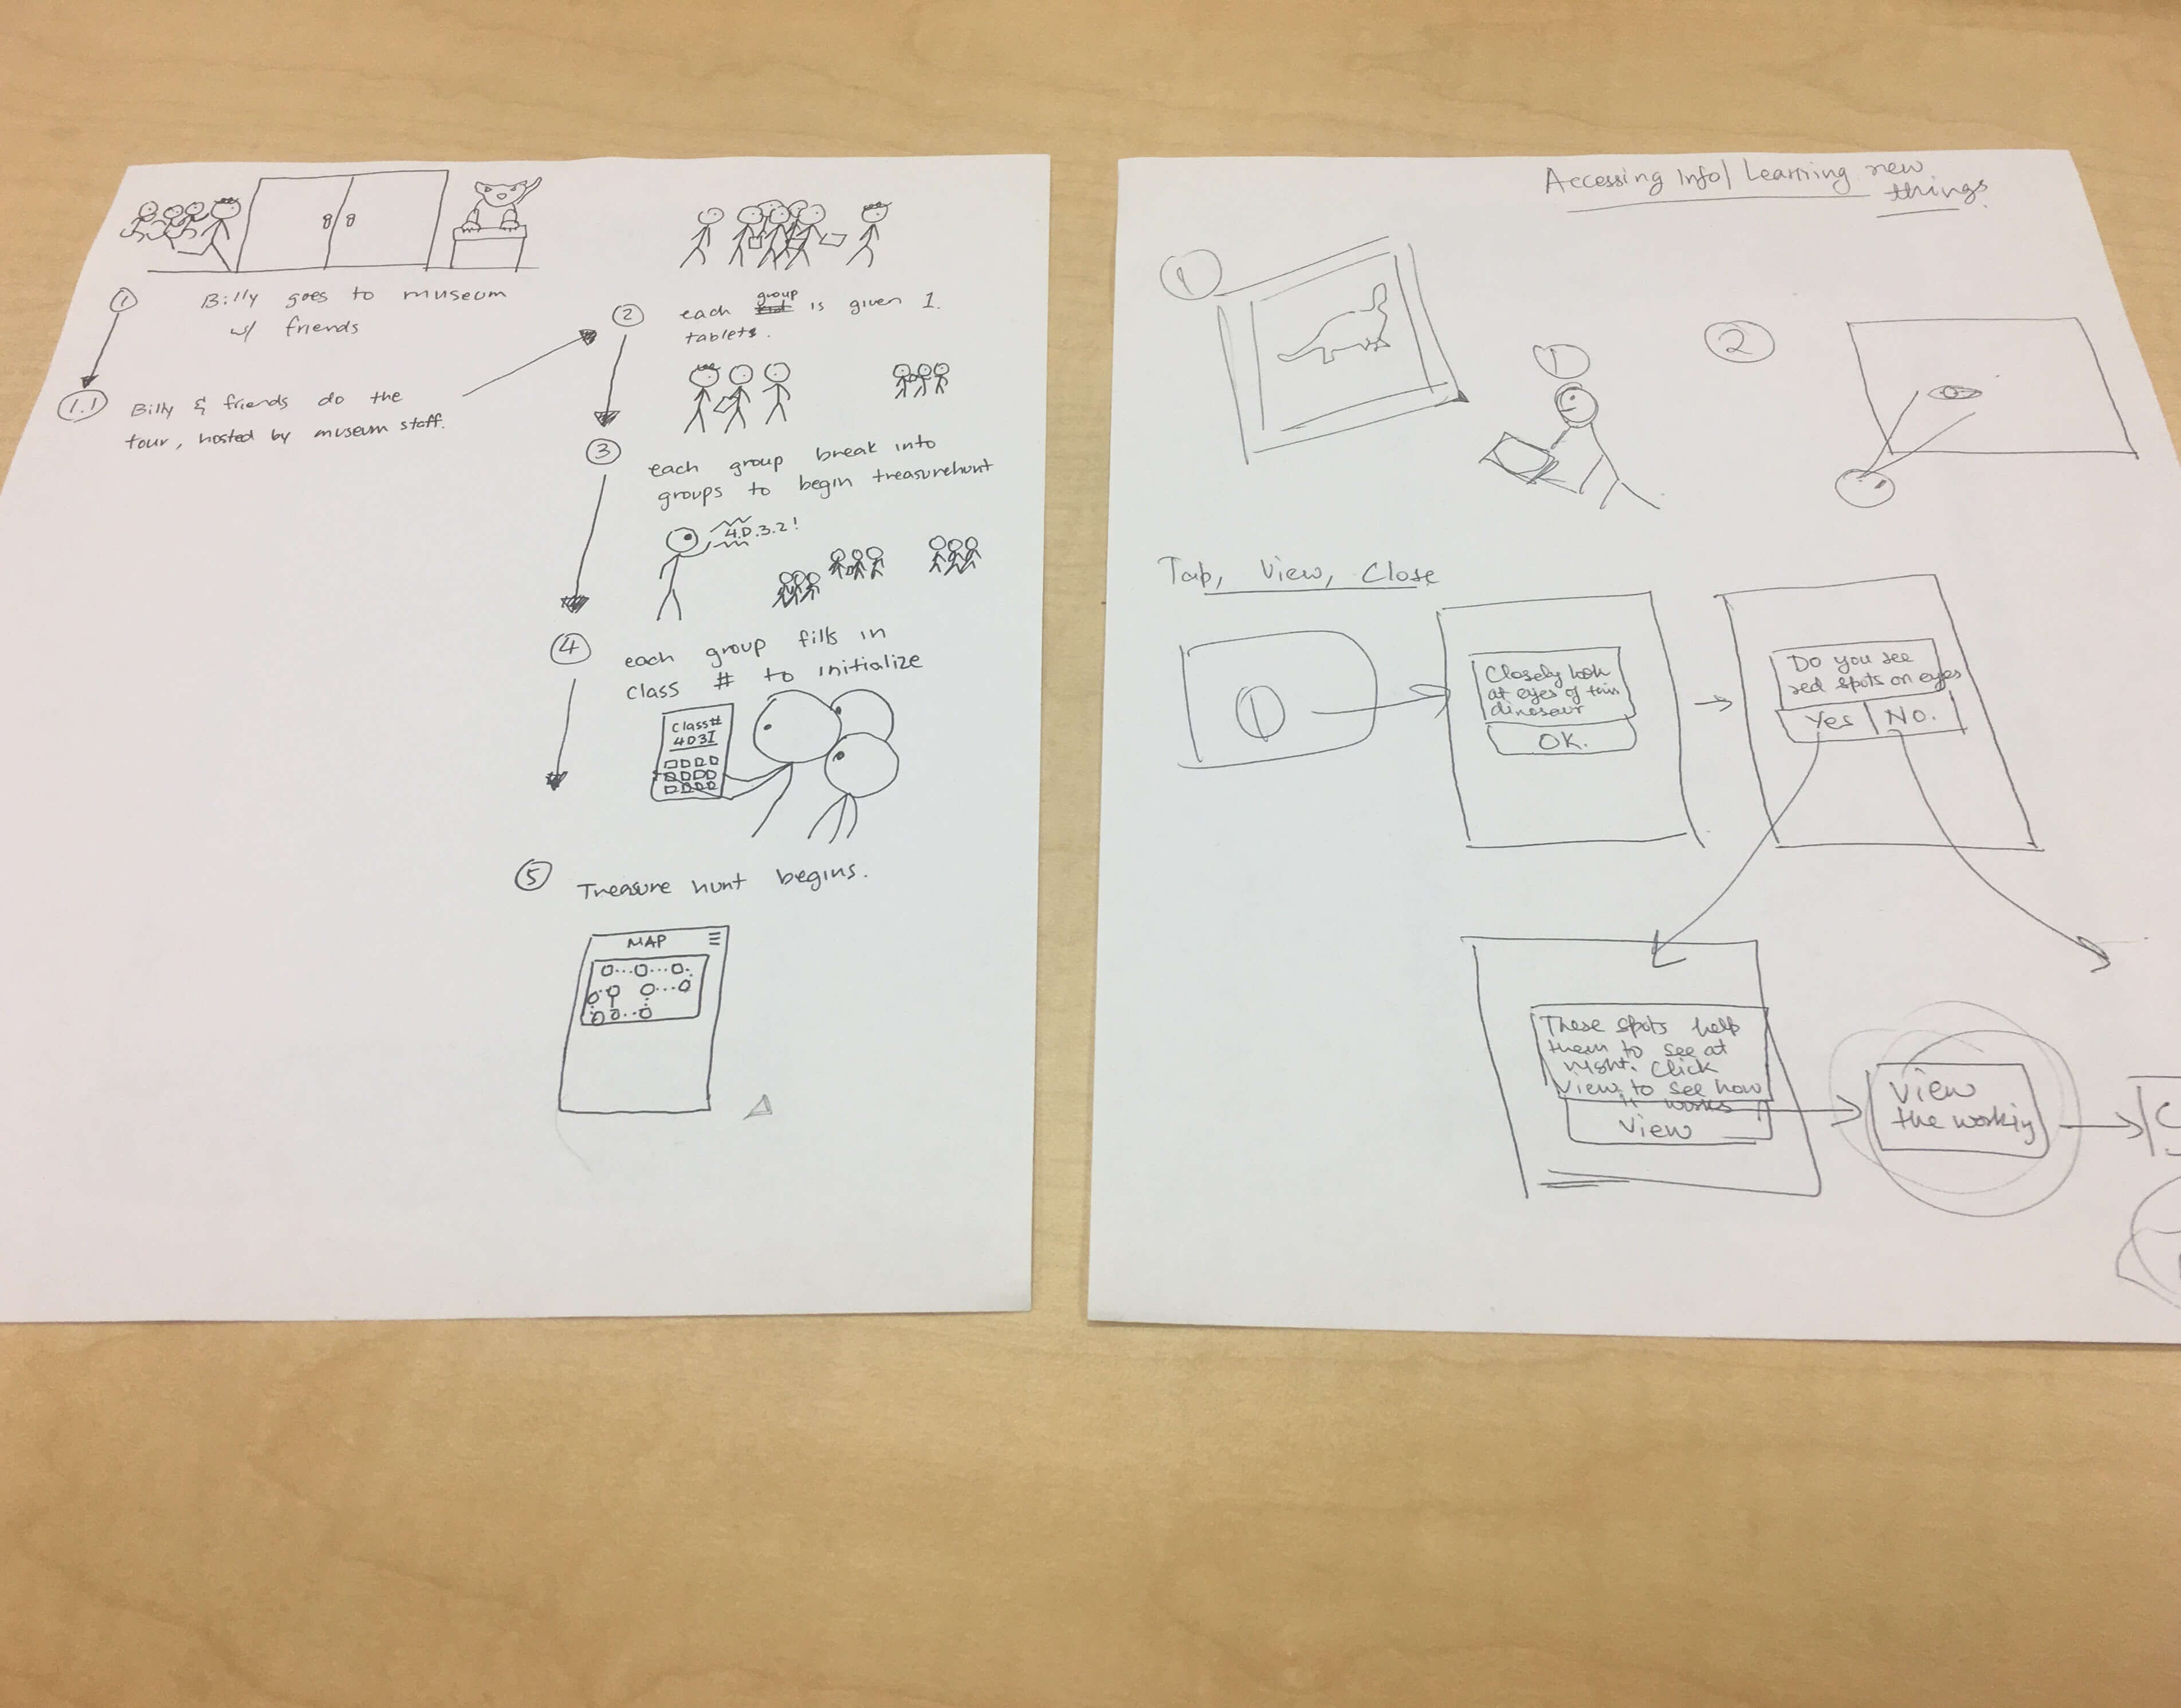 1
Billy goes to museum
w/ friends
1.1
Billy & friends do the
tour, hosted by museum staff.
2
each group is given 1.
tablets.
3
each group break into
groups to begin treasurehunt
4.D.3.2!
4
each group fills in
class # to initialize
Class#
4D3I
5
Treasure hunt begins.
MAP
Accessing Info/ Learning new
things.
1
1
2
Tap, View, Close
1
Closely look
at eyes of this
dinosaur
OK.
Do you see
red spots on eyes
Yes No.
These spots help
them to see at
night. Click
View to see how
it works
View
View
the working